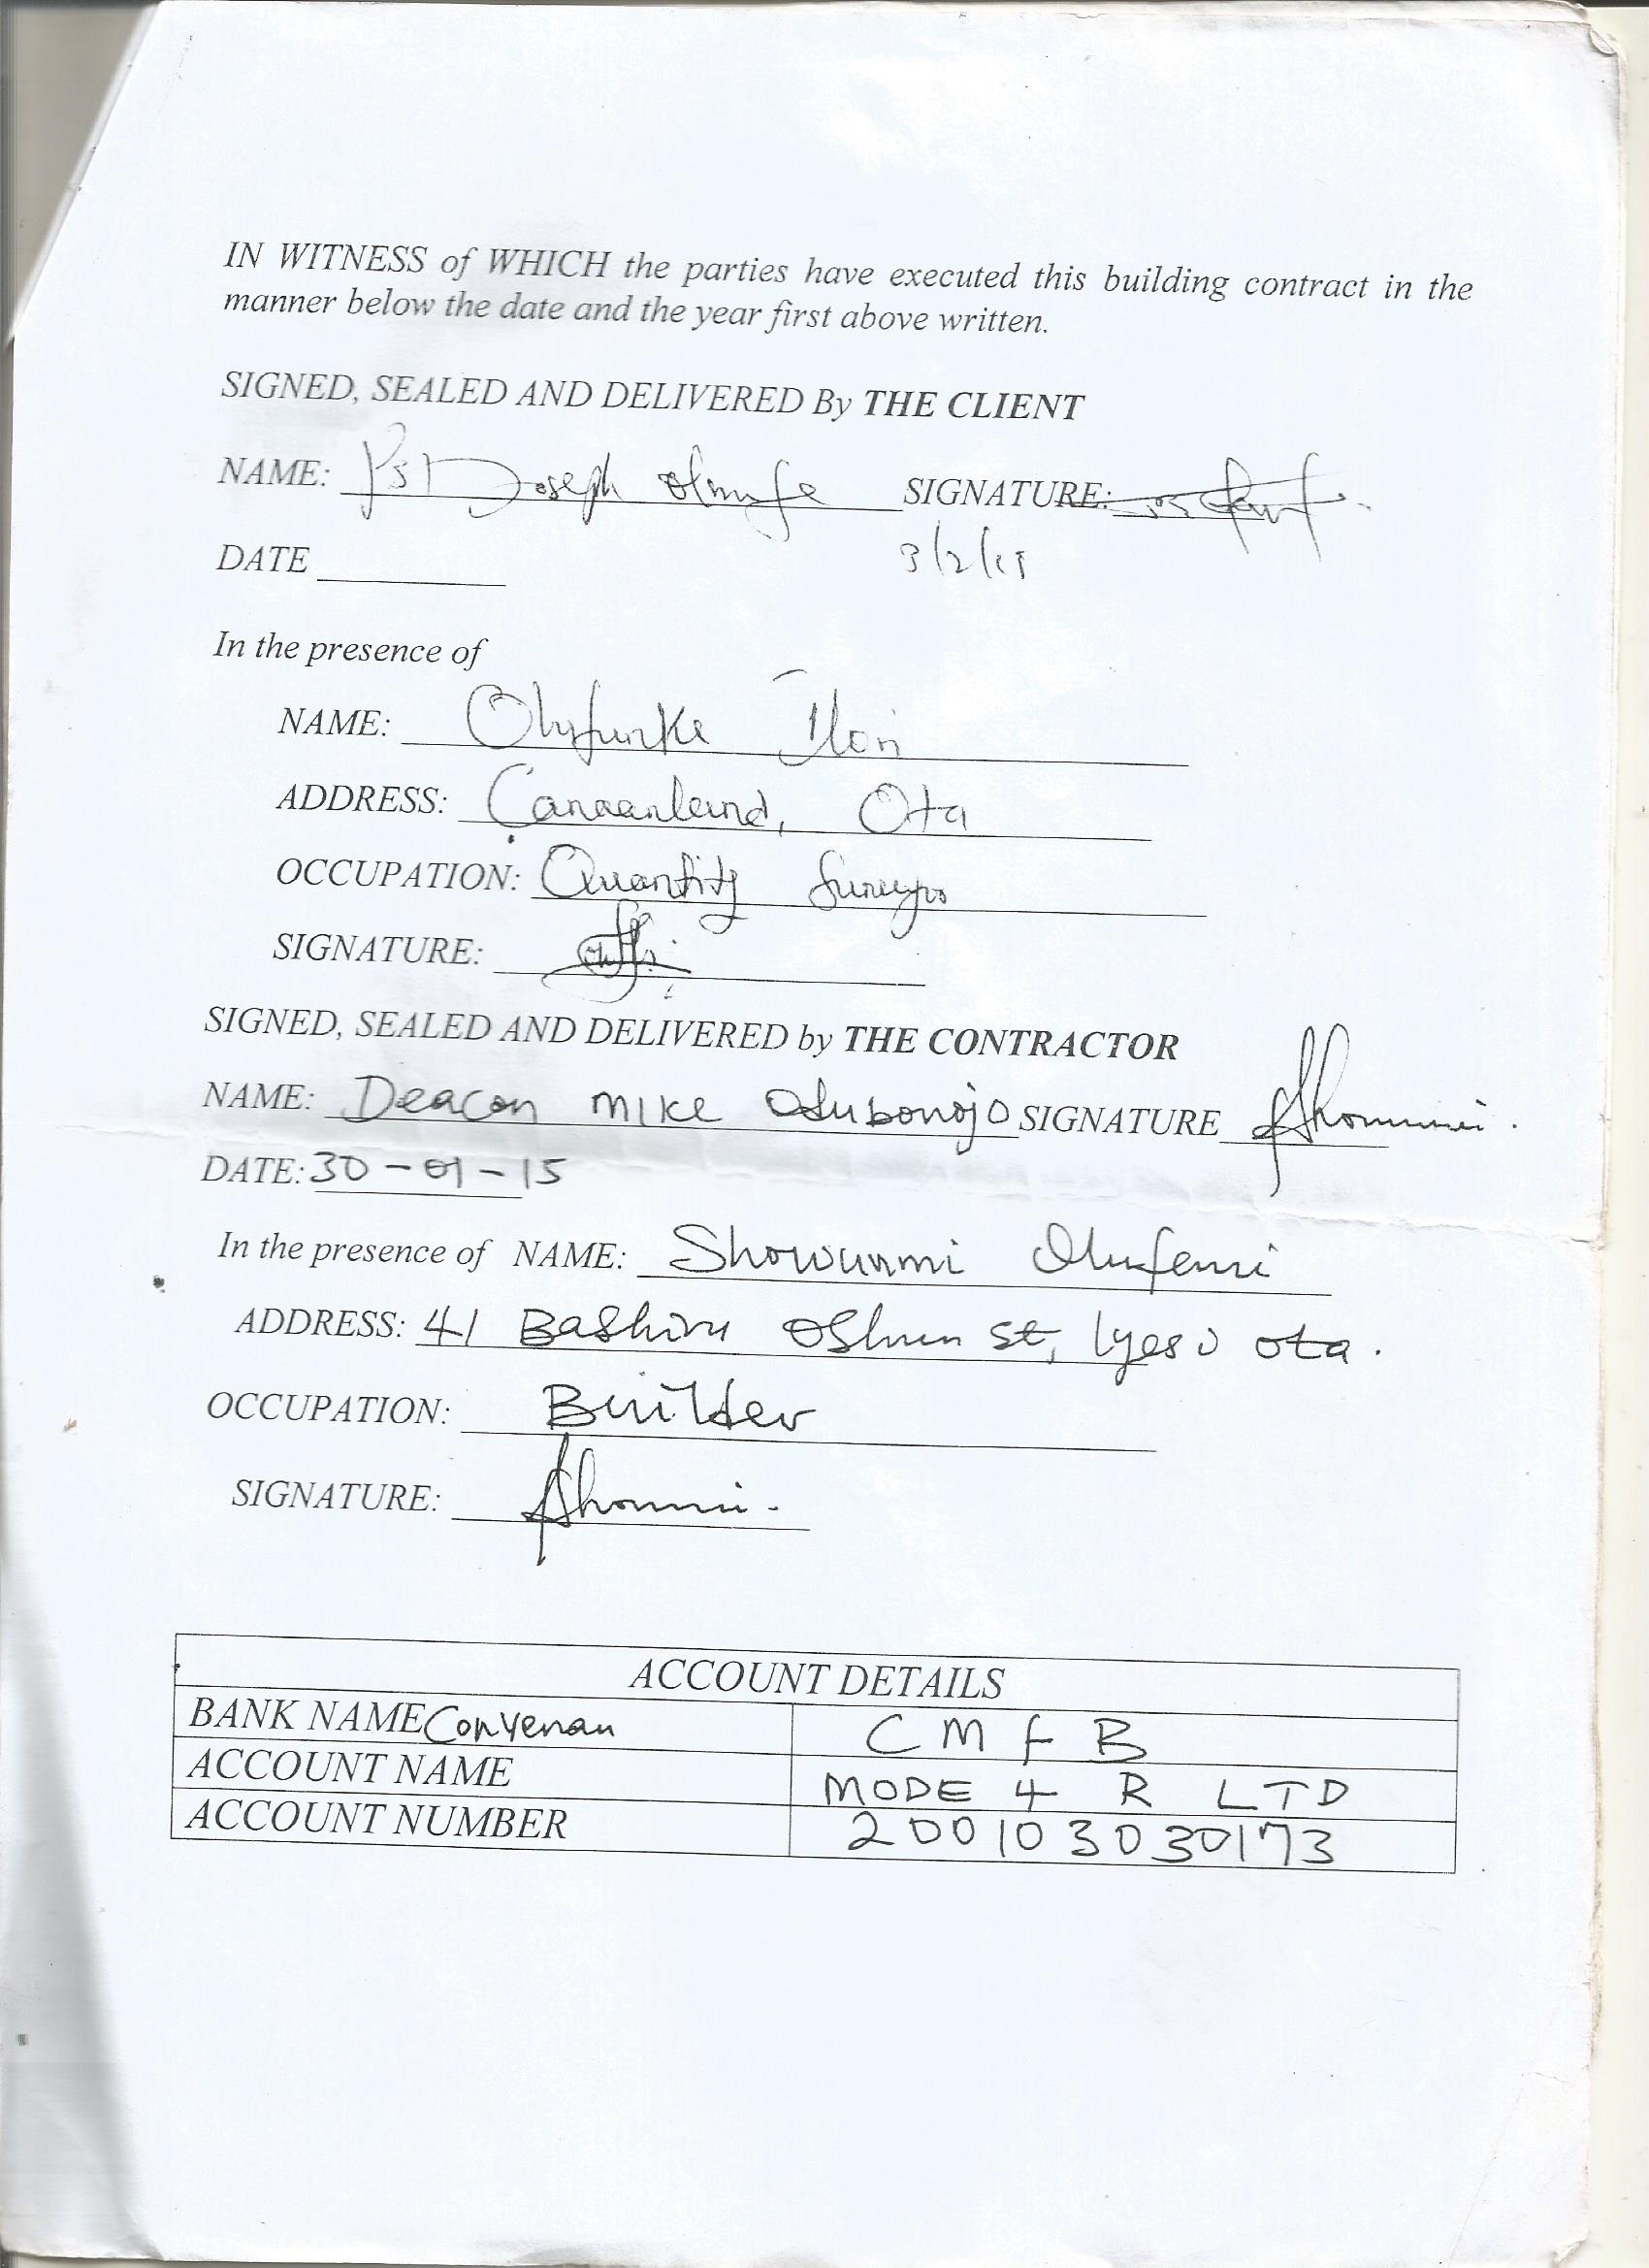 IN WITNESS of WHICH the parties have executed this building contract in the
manner below the date and the year first above written.
SIGNED, SEALED AND DELIVERED By THE CLIENT
NAME: Pst Joseph SIGNATURE:
DATE 3/2/15
In the presence of
NAME: Olufunke Ilori
ADDRESS: Canaanland, Ota
OCCUPATION: Quantity Surveyor
SIGNATURE:
SIGNED, SEALED AND DELIVERED by THE CONTRACTOR
NAME: Deacon MIKE Odubonojo SIGNATURE
DATE: 30-01-15
In the presence of NAME: Showunmi Olufemi
ADDRESS: 41 Bashiru Oshun St, Iyesi Ota.
OCCUPATION: Builder
SIGNATURE:
ACCOUNT DETAILS
BANK NAME Convenan CMFB
ACCOUNT NAME MODE 4 R LTD
ACCOUNT NUMBER 200103030173